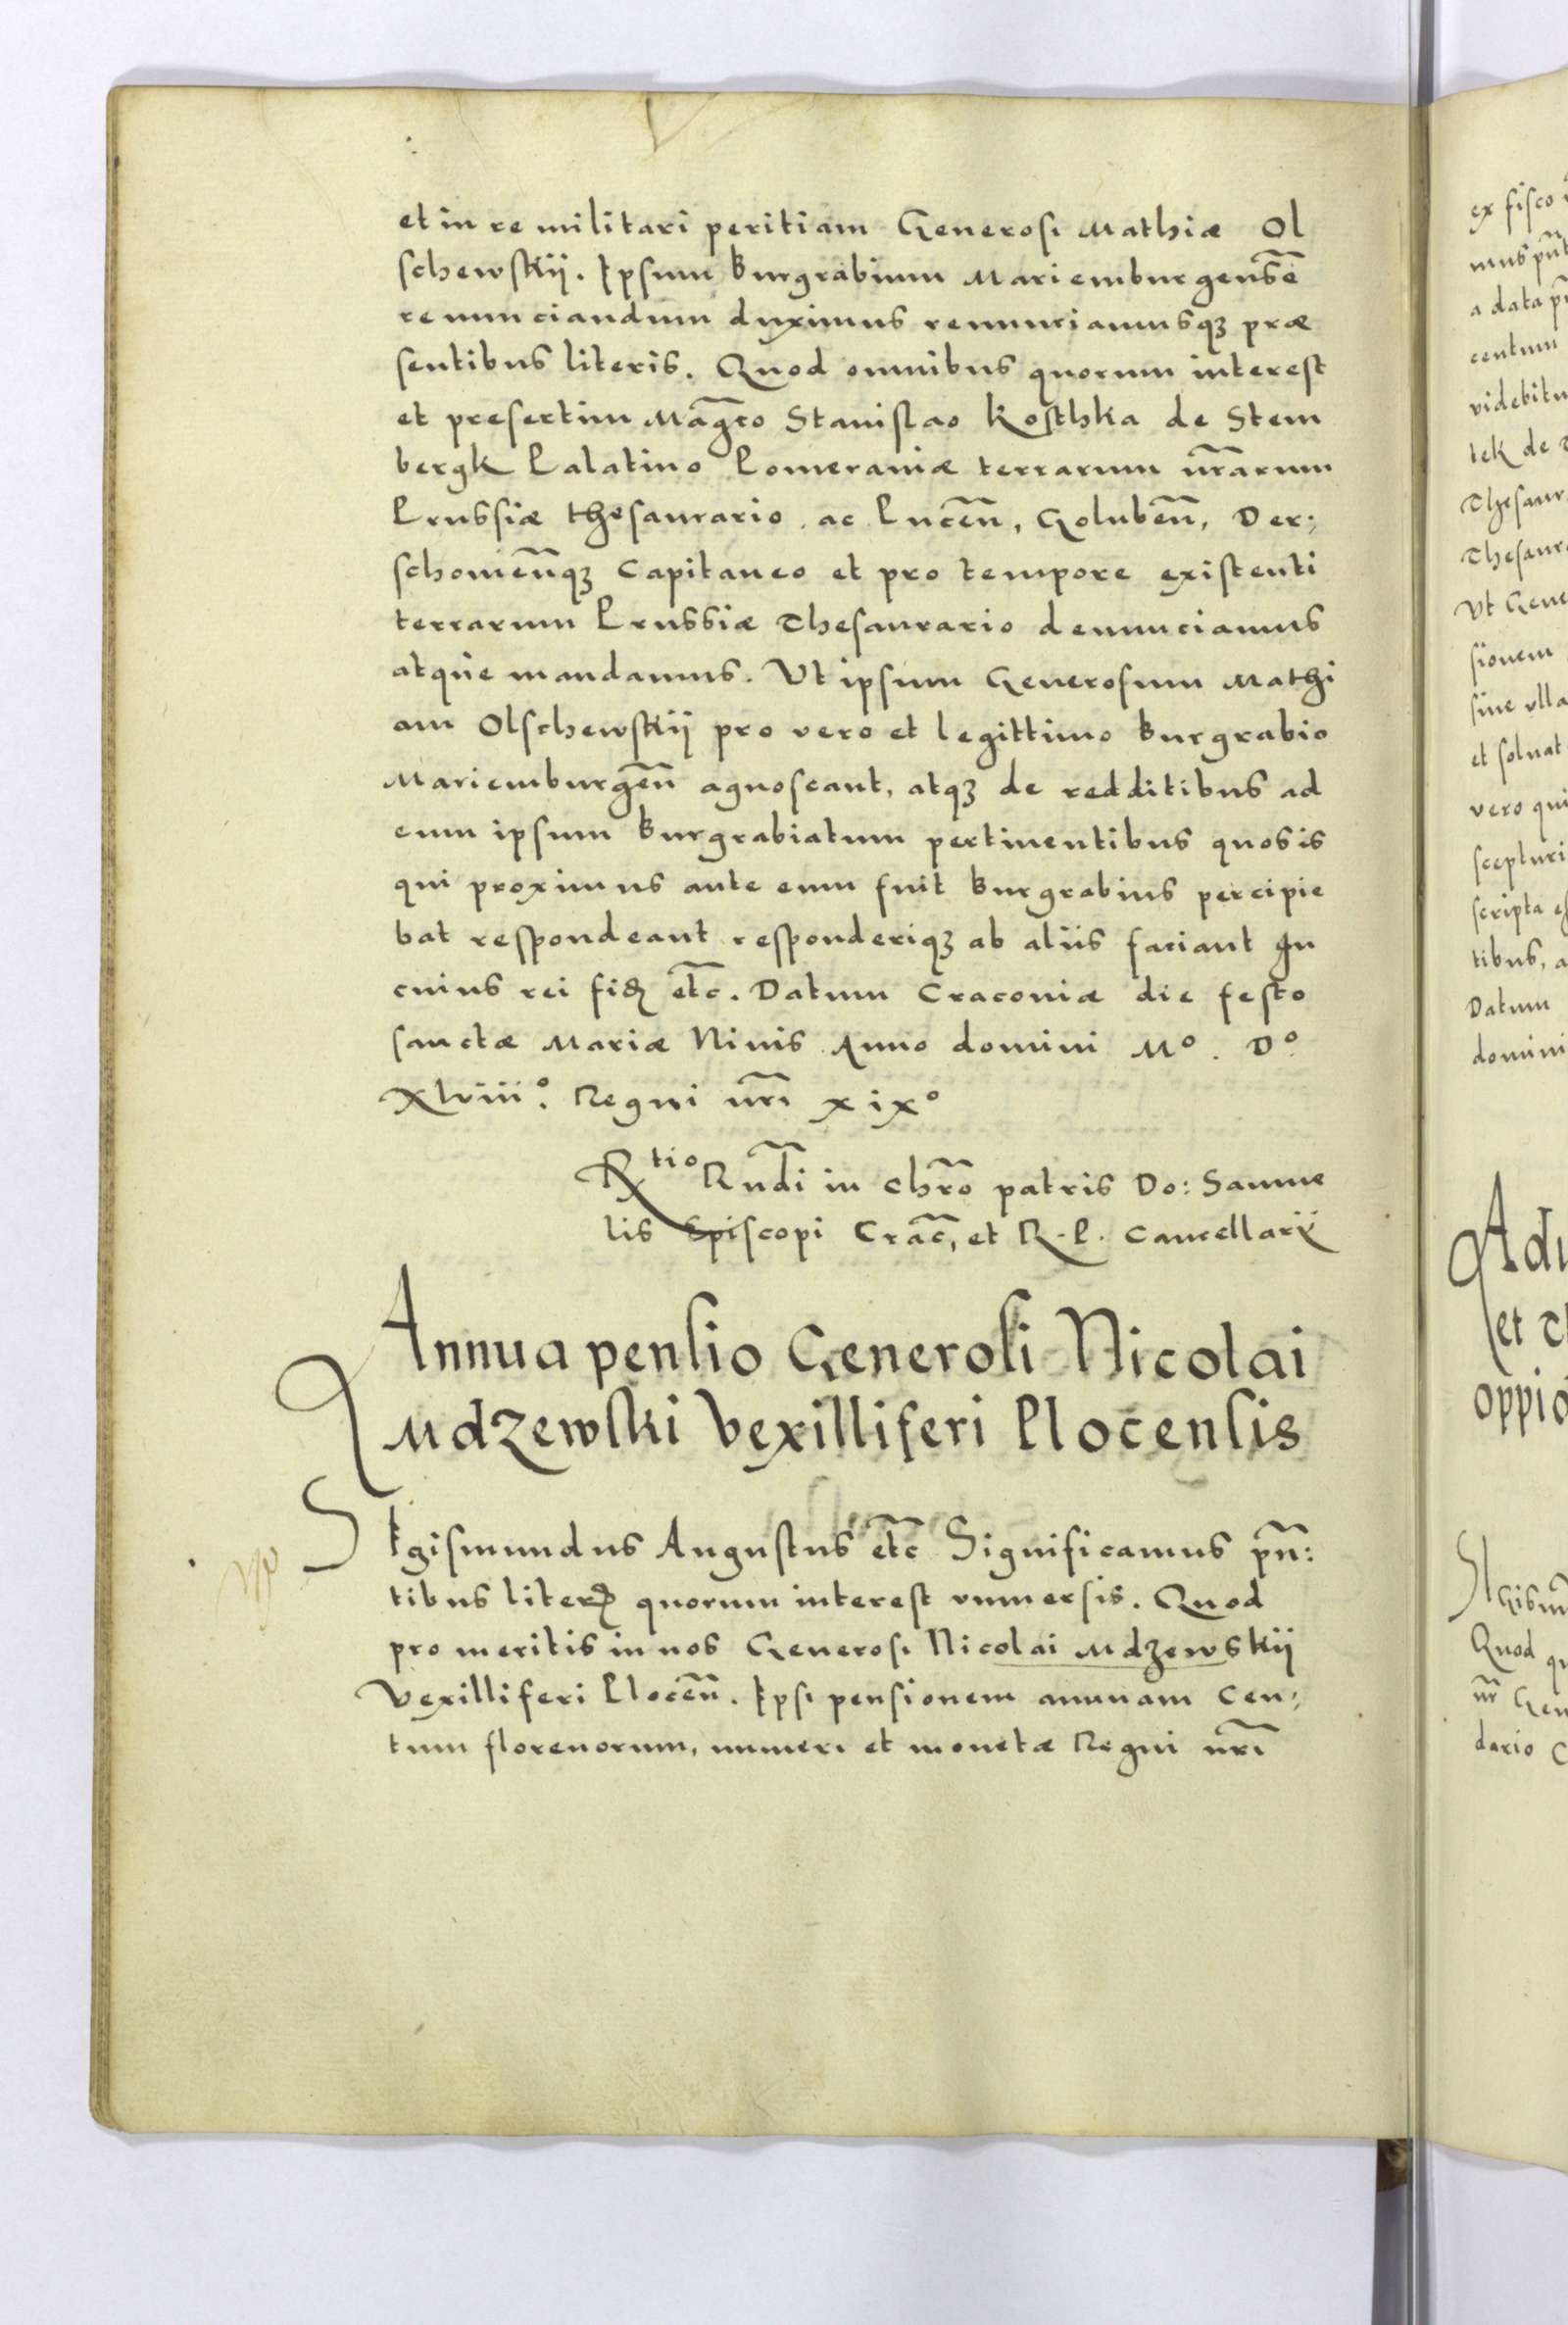 et in re militari peritiam Generosi Mathiæ Ol
schewskij. Ipsum Burgrabium Mariemburgensē
renunciandum duximus renunciamusqꝫ præ
sentibus literis. Quod omnibus quorum interest
et presertim Mag̃co Stanislao Kosthka de Stem
bergk Palatino Pomeraniæ terrarum nr̃arum
Prussiæ thesaurario ac Pucen̄, Goluben̄, Der;
schouien̄qꝫ Capitaneo et pro tempore existenti
terrarum Prussiæ Thesaurario denunciamus
atque mandamus. Vt ipsum Generosum Mathi
am Olschewskij pro vero et legittimo Burgrabio
Mariemburgen̄ agnoscant, atqꝫ de redditibus ad
eum ipsum Burgrabiatum pertinentibus quos is
qui proximus ante eum fuit Burgrabius percipie
bat respondeant responderiqꝫ ab aliis faciant In
cuius rei fidꝫ etc̄. Datum Cracouiæ die festo
sanctæ Mariæ Niuis Anno domini Mº. Dº
Xlviiiº. Regni nr̃i xixº
Rtio Rndi̅ in chr̃o patris Do: Samue
lis Episcopi Crac̄, et R. P. Cancellarij
Annua pensio Generosi Nicolai
Mdzewski Vexilliferi Plocensis
SIgismundus Augustus etc̄ Significamus pn̄:
tibus literꝭ quorum interest vniuersis. Quod
pro meritis in nos Generosi Nicolai Mdzewskij
Vexilliferi Plocen̄. Ipsi pensionem annuam Cen;
tum florenorum, numeri et monetæ Regni nr̃i
ex fisco
a data
centum
videbitu
tek de
Thesaur
Thesaur
Vt Gene
sionem
sine vlla
et soluat
vero qui
scepturi
scripta
tibus, a
Datum
domini
Adu
et
oppid
SIgism
Quod qu
nr̃ Gen
dario C